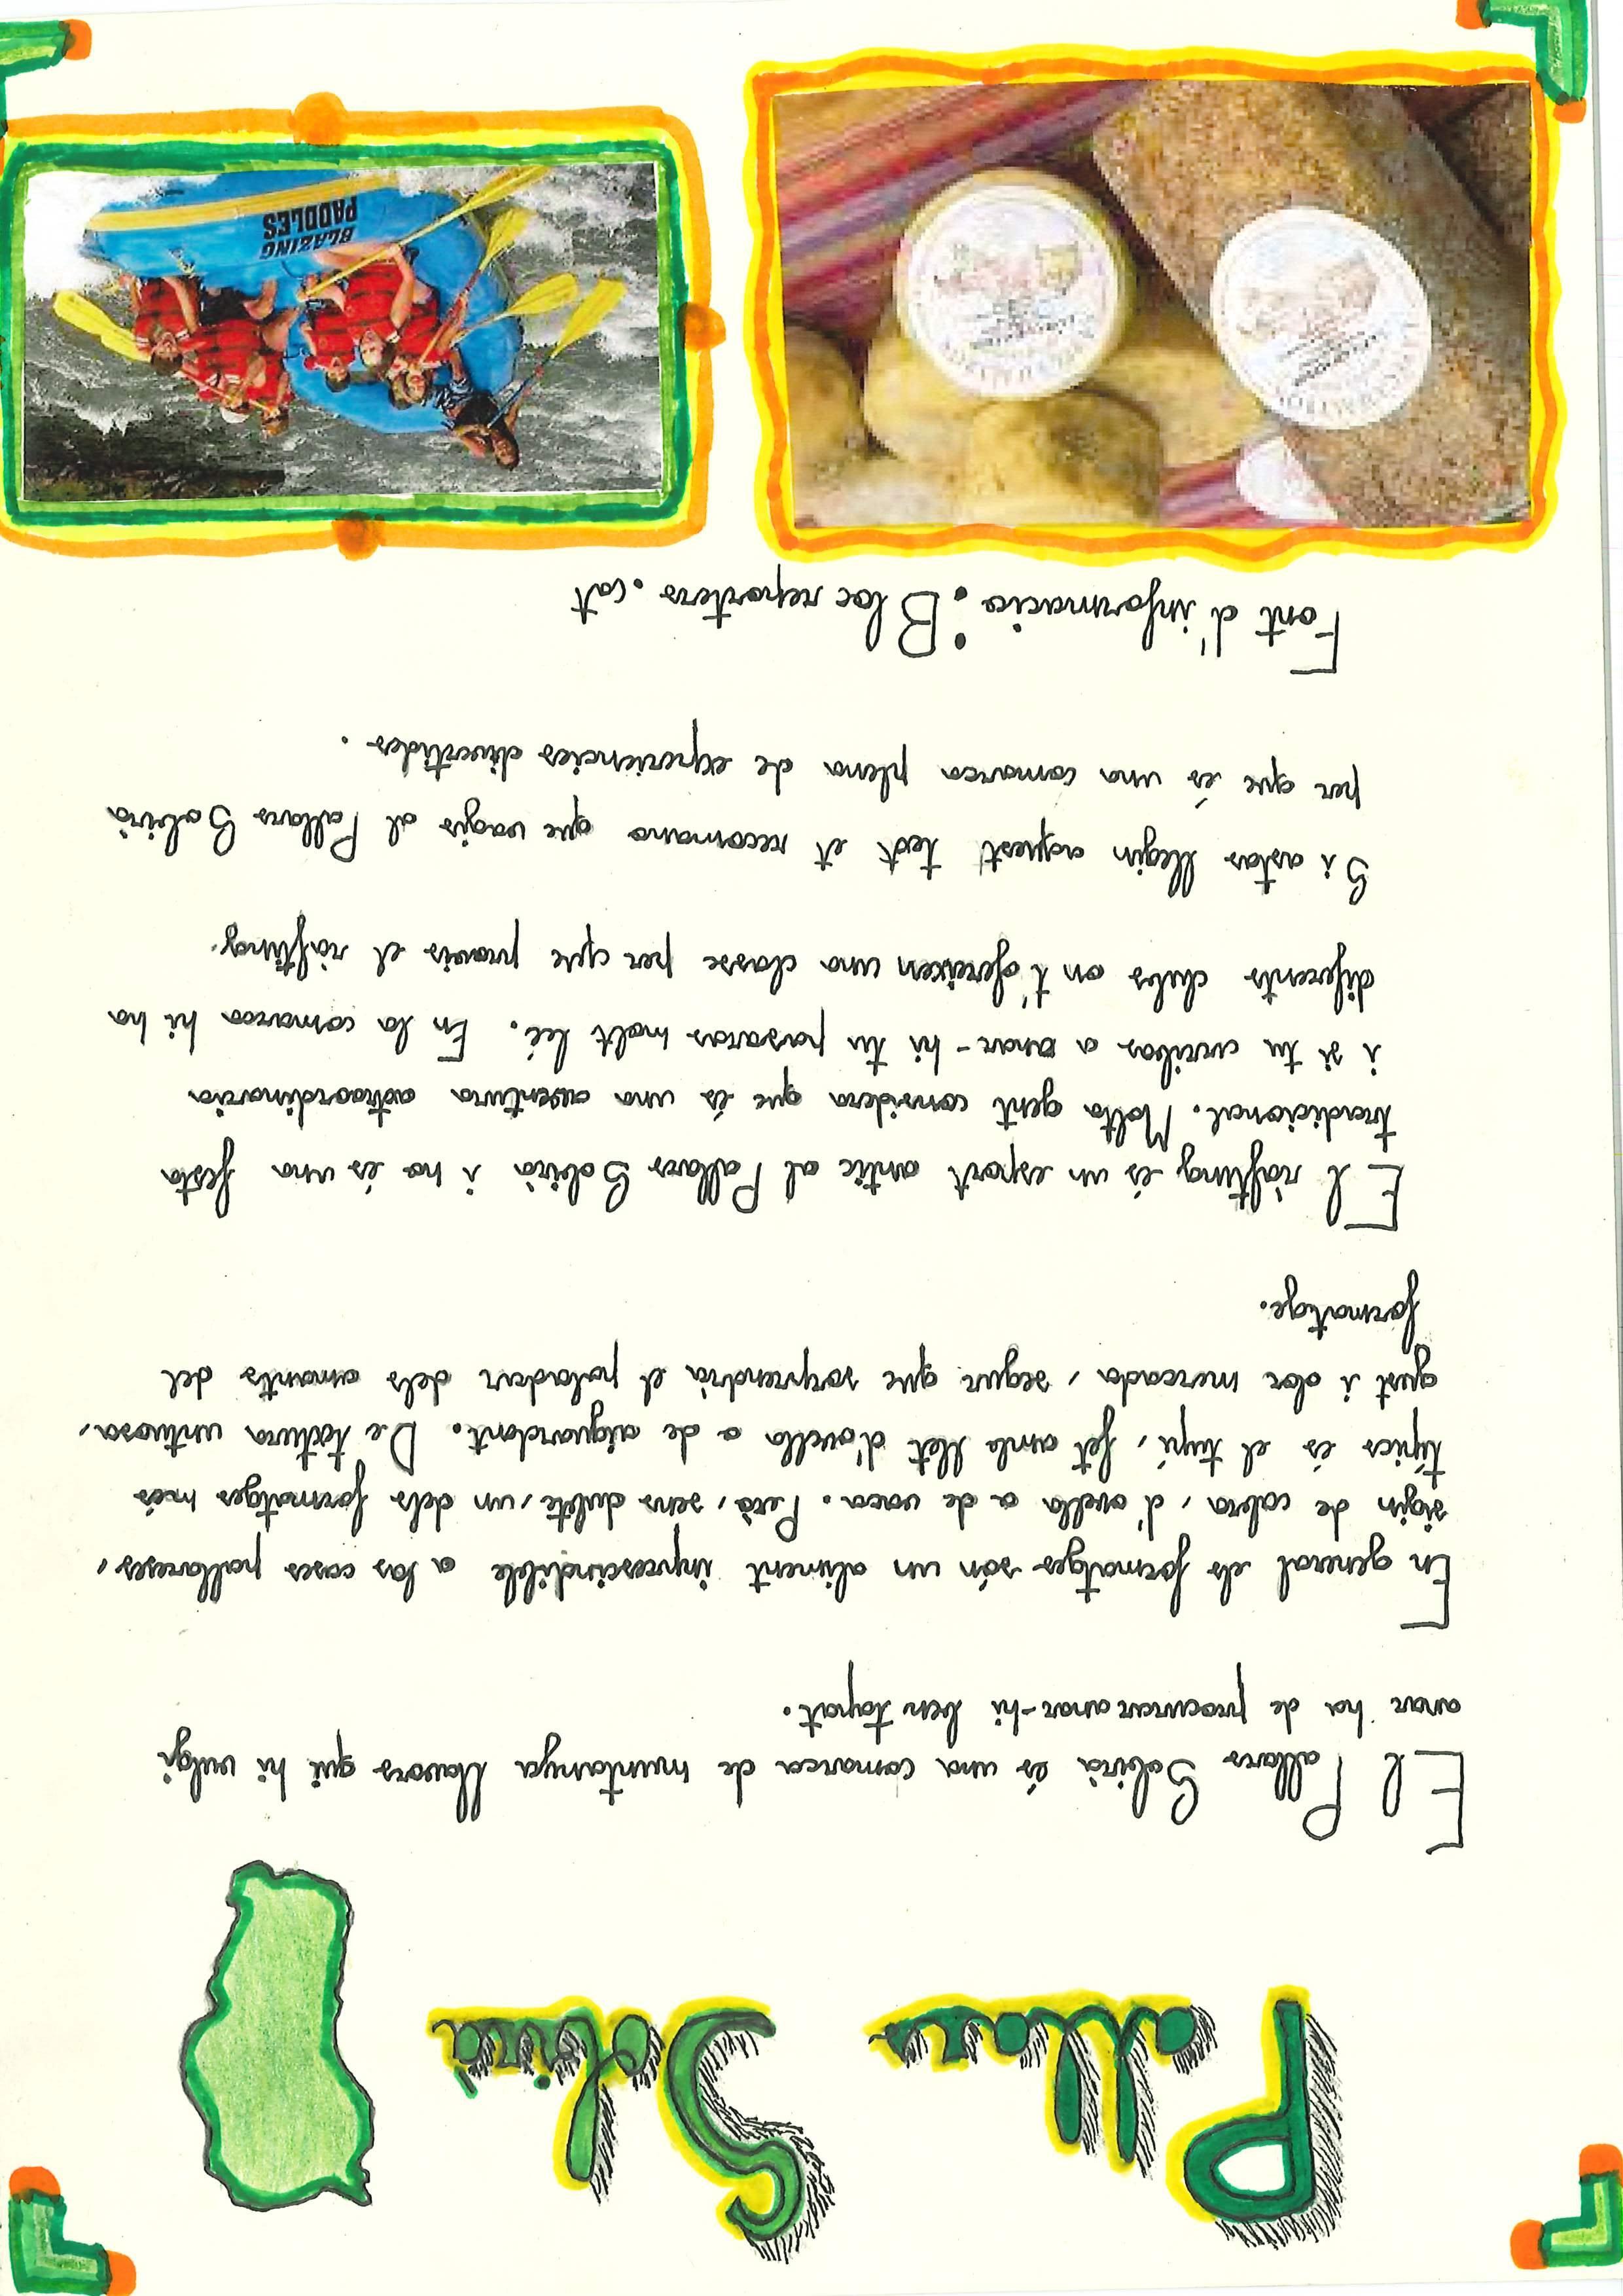 Pallars Sobirà
El Pallars Sobirà és una comarca de muntanya llavors qui hi vulgi
anar ha de procurar anar-hi ben tapat.
En general els formatges són un aliment imprescindible a las cases pallareses,
sigin de cabra, d'ovella o de vaca. Però, sens dubte, un dels formatges més
típics és el tupí, fet amb llet d'ovella o de aiguardent. De textura untuosa,
gust i olor mercada, segur que sorprendrà el paladar dels amants del
formatge.
El ràfting és un esport antic al Pallars Sobirà i ha és una festa
tradicional. Molta gent considera que és una aventura extraordinaria
i si tu arribas a anar-hi tu pasaras molt bé. En la comarca hi ha
diferents clubs on t'ofereixen una classe per que provis el ràfting.
Si astas llegin aquest text et recomano que vagis al Pallars Sobirà
per que és una comarca plena de experiencies divertides.
Font d'informacio: Bloc reporters.cat
BLAZING
PADDLES